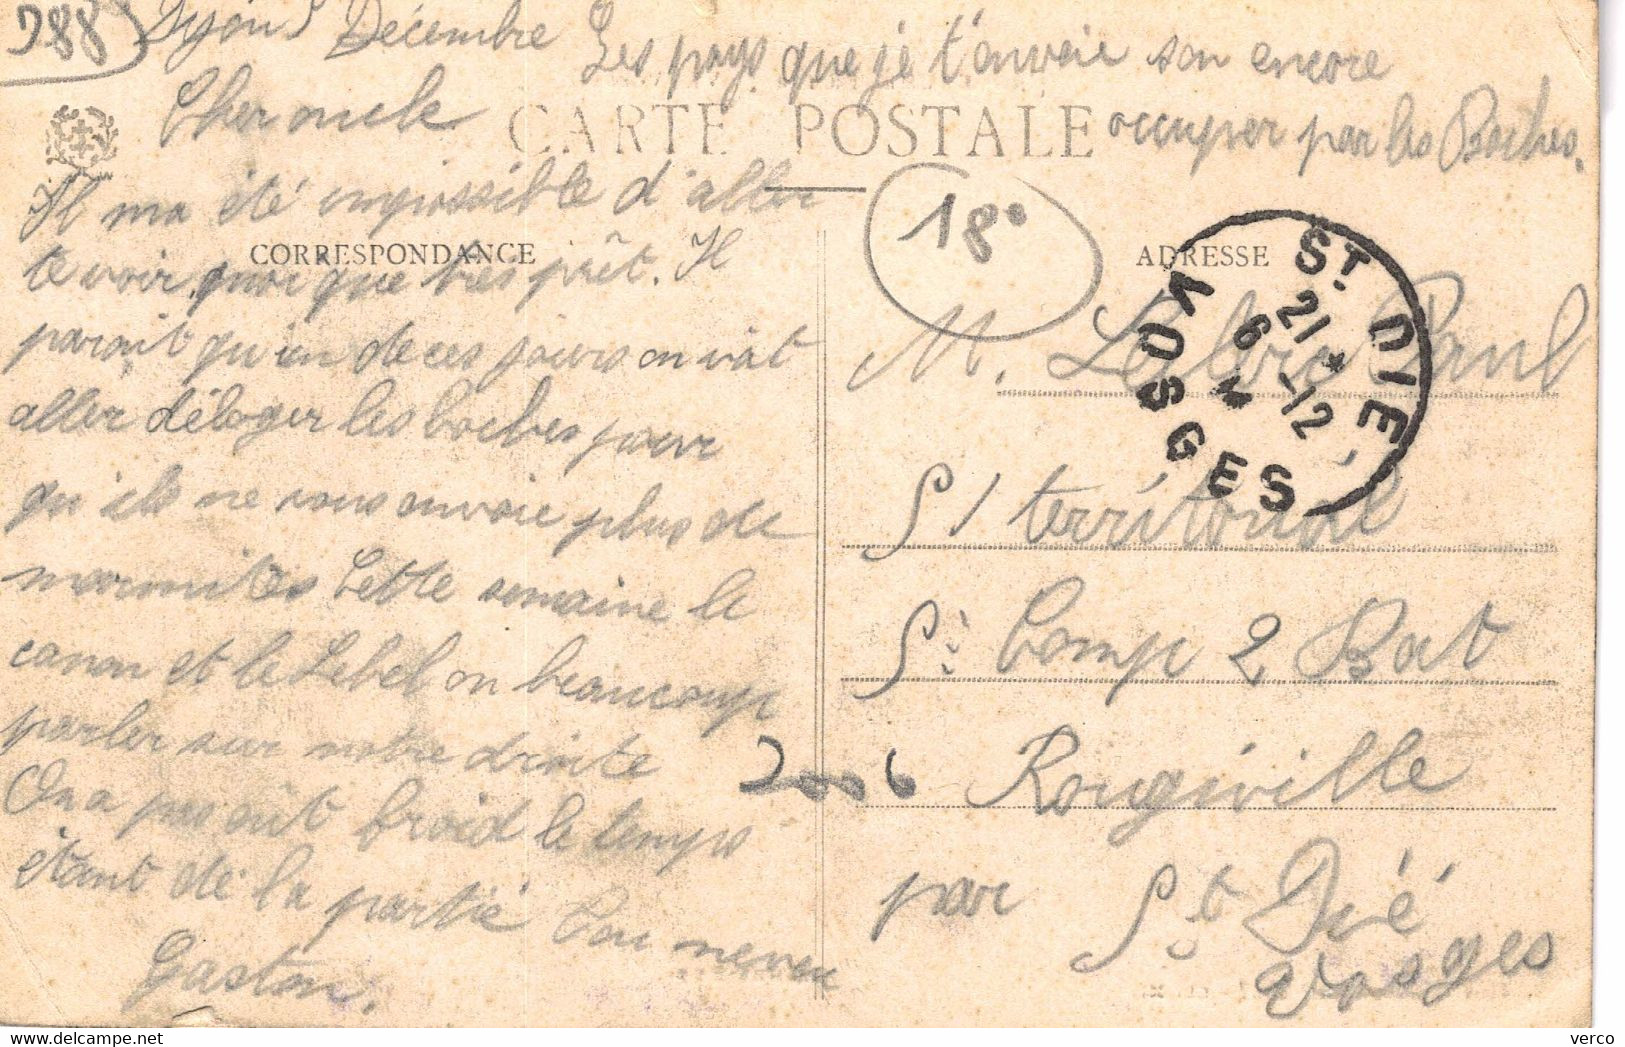 988
Dijon 5 Décembre
Les pays que je t'anvoie son encore
occuper par les Boches.
Cher oncle
CARTE POSTALE
18°
Il ma été impossible d'aller
CORRESPONDANCE
te voir quoi que très prêt. Il
parait qu'un de ces jours on vat
aller déloger les boches pour
qu'ils ne nous anvoie plus de
marmites Cette semaine le
canon et le Lebel on beaucoup
parler sur notre droite
On a pas eût froid le temps
étant de la partie Ton neveu
Gaston.
ADRESSE
ST. DIE
VOSGES
21 *
6 -12
14
M. Paul
51 territorial
5è Comp 2 Bat
2006
Rougiville
par St Dié
Vosges
verco